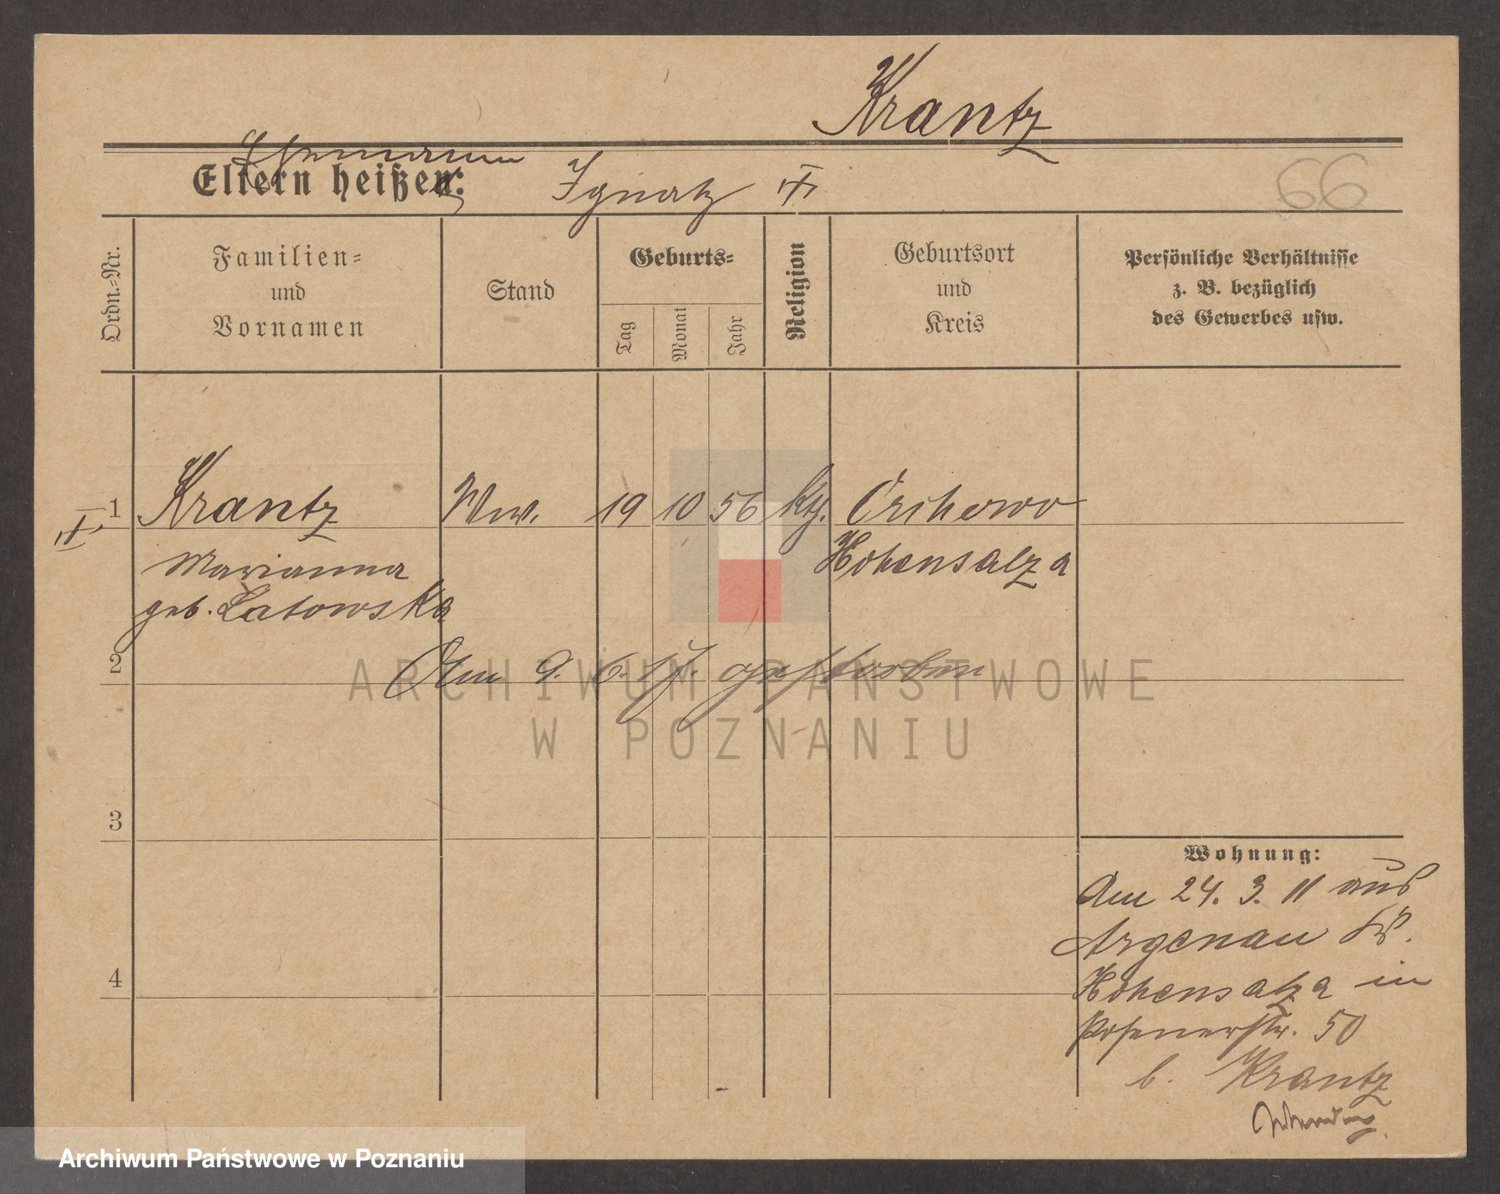 Krantz
Ehemann
Eltern heißen: Ignatz
66
Ordn.-Nr.
Familien-
und
Vornamen
Stand
Geburts-
Tag
Monat
Jahr
Religion
Geburtsort
und
Kreis
Persönliche Verhältnisse
z. B. bezüglich
des Gewerbes usw.
1 Krantz Ww. 19 10 56 kth.
Hohensalza
Marianna
geb. Latowska
2
Am 9. 6. 17. gestorben
3
4
Wohnung:
Am 24. 3. 11 aus
Argenau Kr.
Hohensalza in
Posenerstr. 50
b. Krantz
ARCHIWUM PAŃSTWOWE
W POZNANIU
Archiwum Państwowe w Poznaniu